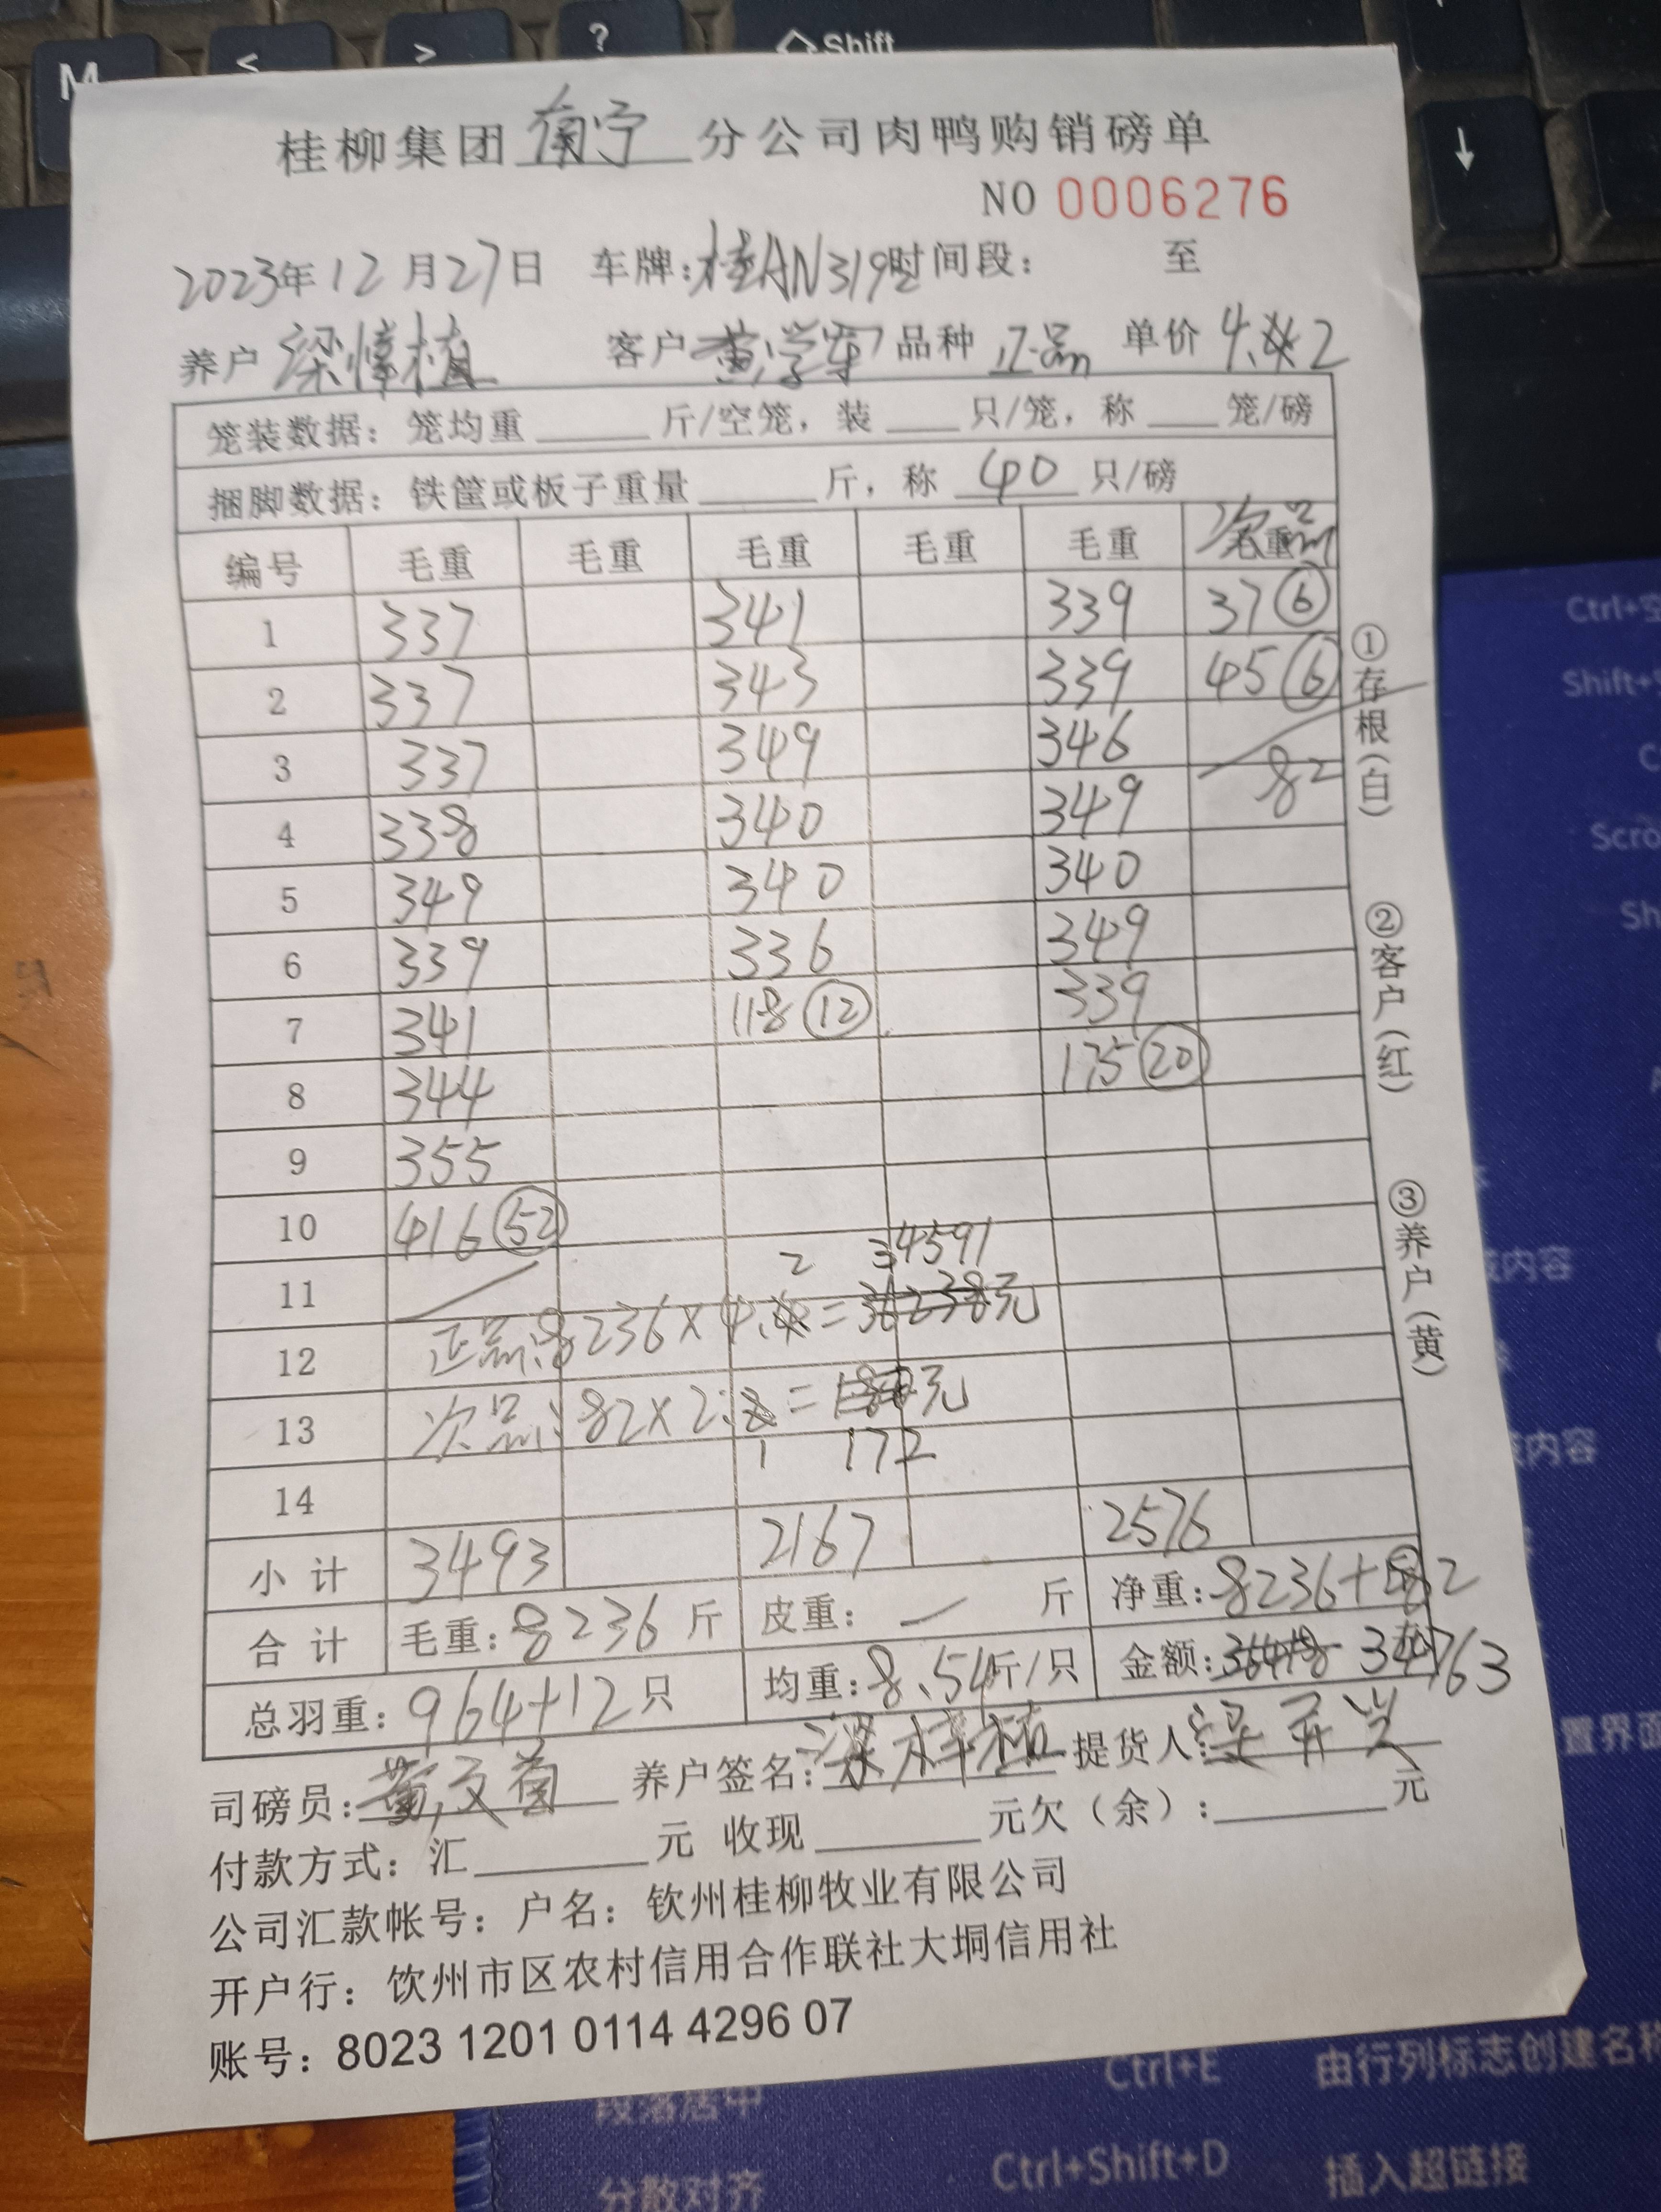 M < > ? Shift
↓
桂柳集团 南宁 分公司肉鸭购销磅单
NO 0006276
2023年12月27日 车牌:桂AN319 时间段: 至
养户 客户 黄学军 品种 正品 单价 4.2
笼装数据:笼均重 斤/空笼,装 只/笼,称 笼/磅
捆脚数据:铁筐或板子重量 斤,称 40 只/磅
编号 毛重 毛重 毛重 毛重 毛重 次品
1 337 341 339 37 ⑥
2 337 343 339 45 ⑥
3 337 349 346 82
4 338 340 349
5 349 340 340
6 339 336 349
7 341 118 ⑫ 339
8 344 175 ⑳
9 355
10 416 52
11 2 34591
12 正品:8236×4. = 36238元
13 次品:82×2. = 元
1 172
14
小计 3493 2167 2576
合计 毛重:8236斤 皮重: — 斤 净重:8236+82
总羽重:964+12只 均重:8.54斤/只 金额: 34763
司磅员: 养户签名: 提货人:
付款方式:汇 元 收现 元欠(余): 元
公司汇款帐号:户名:钦州桂柳牧业有限公司
开户行:饮州市区农村信用合作联社大垌信用社
账号:8023 1201 0114 4296 07
①存根(白)
②客户(红)
③养户(黄)
Ctrl+E 由行列标志创建名称
段落居中
Ctrl+Shift+D 插入超链接
分散对齐
置界面